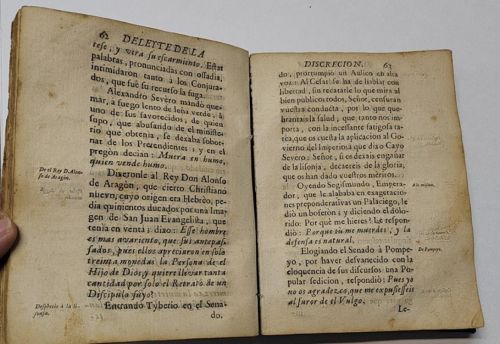 62 DELEITE DE LA
rese, y vira su escarmiento. Estas
palabras, pronunciadas con ossadia,
intimidaron tanto à los Conjura-
dos, que fuè su recurso la fuga.
Alexandro Severo mandò que-
mar, à fuego lento de leña verde, à
uno de sus favorecidos, de quien
supo, que abusando del ministe-
rio que obtenia, se dexaba sobor-
nar de los Pretendientes; y en el
pregòn decian: Muera en humo,
quien vende humo.
Del Rey D. Alon-
so de Aragòn.
Dixeronle al Rey Don Alonso
de Aragòn, que cierto Christiano
nuevo, cuyo origen era Hebrèo, pe-
dia quinientos ducados por una Ima-
gen de San Juan Evangelista, que
tenia en venta; dixo: Esse hombre
es mas avariento, que sus antepas-
sados, pues ellos apreciaron en solo
treinta monedas la Persona de el
Hijo de Dios; y quiere llevar tanta
cantidad por solo el Retrato de un
Discipulo suyo.
Desprecio à la li-
sonja.
Entrando Tyberio en el Sena-
do,
DISCRECION. 63
do, prorrumpiò un Aulico en alta
voz: Al Cesar se ha de hablar con
libertad, sin recatarle lo que mira al
bien publico: todos, Señor, censuran
vuestra conducta, por lo que que-
brantais la salud, que tanto nos im-
porta, con la incessante fatigosa ta-
rèa, que os cuesta la aplicacion al Go-
vierno del Imperio: à que dixo a Cayo
Severo: Señor, si os dexais engañar
de la lisonja, decaereis de la gloria,
que os han dado vuestros mèritos.
Al mismo.
Oyendo Segismundo, Empera-
dor, que le alababa en exageraciones
preponderativas un Palaciego, le
diò un bofetòn; y diciendo el dolo-
rido: Por què me hieres? Le respon-
diò: Porque tu me muerdes, y la
defensa es natural.
De Pompeyo.
Elogiando el Senado à Pompe-
yo, por haver desvarecido con la
eloquencia de sus discursos una Po-
pular sedicion, respondiò: Pues yo
no os agradezco, que me expusiesseis
al furor de el Vulgo.
Le-